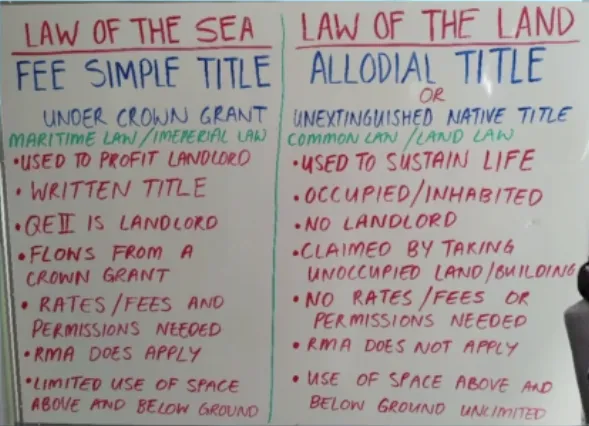 LAW OF THE SEA
FEE SIMPLE TITLE
UNDER CROWN GRANT
MARITIME LAW/IMEPERIAL LAW
•USED TO PROFIT LANDLORD
•WRITTEN TITLE
•QEII IS LANDLORD
•FLOWS FROM A
CROWN GRANT
•RATES/FEES AND
PERMISSIONS NEEDED
•RMA DOES APPLY
•LIMITED USE OF SPACE
ABOVE AND BELOW GROUND
LAW OF THE LAND
ALLODIAL TITLE
OR
UNEXTINGUISHED NATIVE TITLE
COMMON LAW/LAND LAW
•USED TO SUSTAIN LIFE
•OCCUPIED/INHABITED
•NO LANDLORD
•CLAIMED BY TAKING
UNOCCUPIED LAND/BUILDING
•NO RATES/FEES OR
PERMISSIONS NEEDED
•RMA DOES NOT APPLY
•USE OF SPACE ABOVE AND
BELOW GROUND UNLIMITED